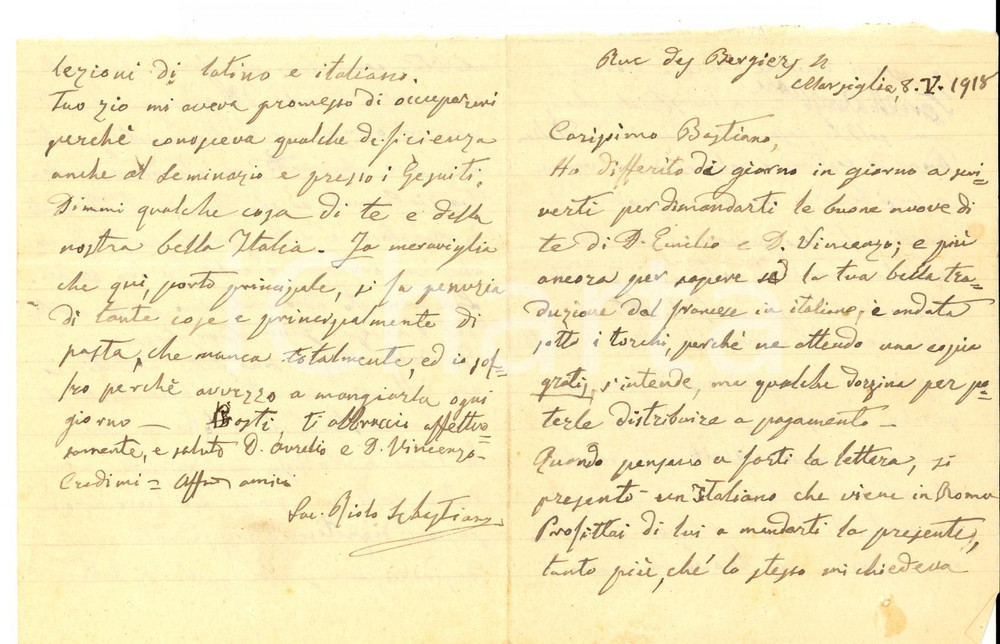 Rue des Bergers 11
Marsiglia 8.V.1918
Carissimo Bastiano,
Ho differito di giorno in giorno a scri-
verti per dimandarti le buone nuove di
te di D. Emilio e D. Vincenzo; e più
ancora per sapere se la tua bella tra-
duzione dal francese in italiano, è andata
sotto i torchi, perchè ne attendo una copia
gratis, s'intende, ma qualche dozzina per po-
terle distribuire a pagamento —
Quando pensavo a farti la lettera, si
presentò un Italiano che viene in Roma
Profittai di lui a mandarti la presente,
tanto più, ché lo stesso mi chiedeva
lezioni di latino e italiano.
Tuo zio mi aveva promesso di occuparmi
perchè conosceva qualche deficienza
anche al Seminario e presso i Gesuiti.
Dimmi qualche cosa di te e della
nostra bella Italia - Fa meraviglia
che qui, porto principale, si fa penuria
di tante cose e principalmente di
pasta, che manca totalmente, ed io sof-
fro perchè avvezzo a mangiarla ogni
giorno — Basti, ti abbraccio affettuo-
samente, e saluto D. Aurelio e D. Vincenzo -
Credimi = Affmo amico
Sac. Riolo Sebastiano